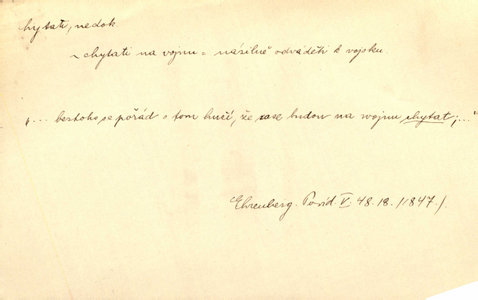 chytati, nedok.
~ chytati na vojnu = násilně odváděti k vojsku.
"... beztoho se pořád o tom hučí, že zase budou na wojnu chytat;..."
Ehrenberg. Povíd V. 48.18. /1847./